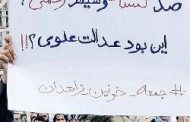 صد کشته و سیصد زخمی؟
این بود عدالت علوی؟!!
#جمعه_خونین_زاهدان